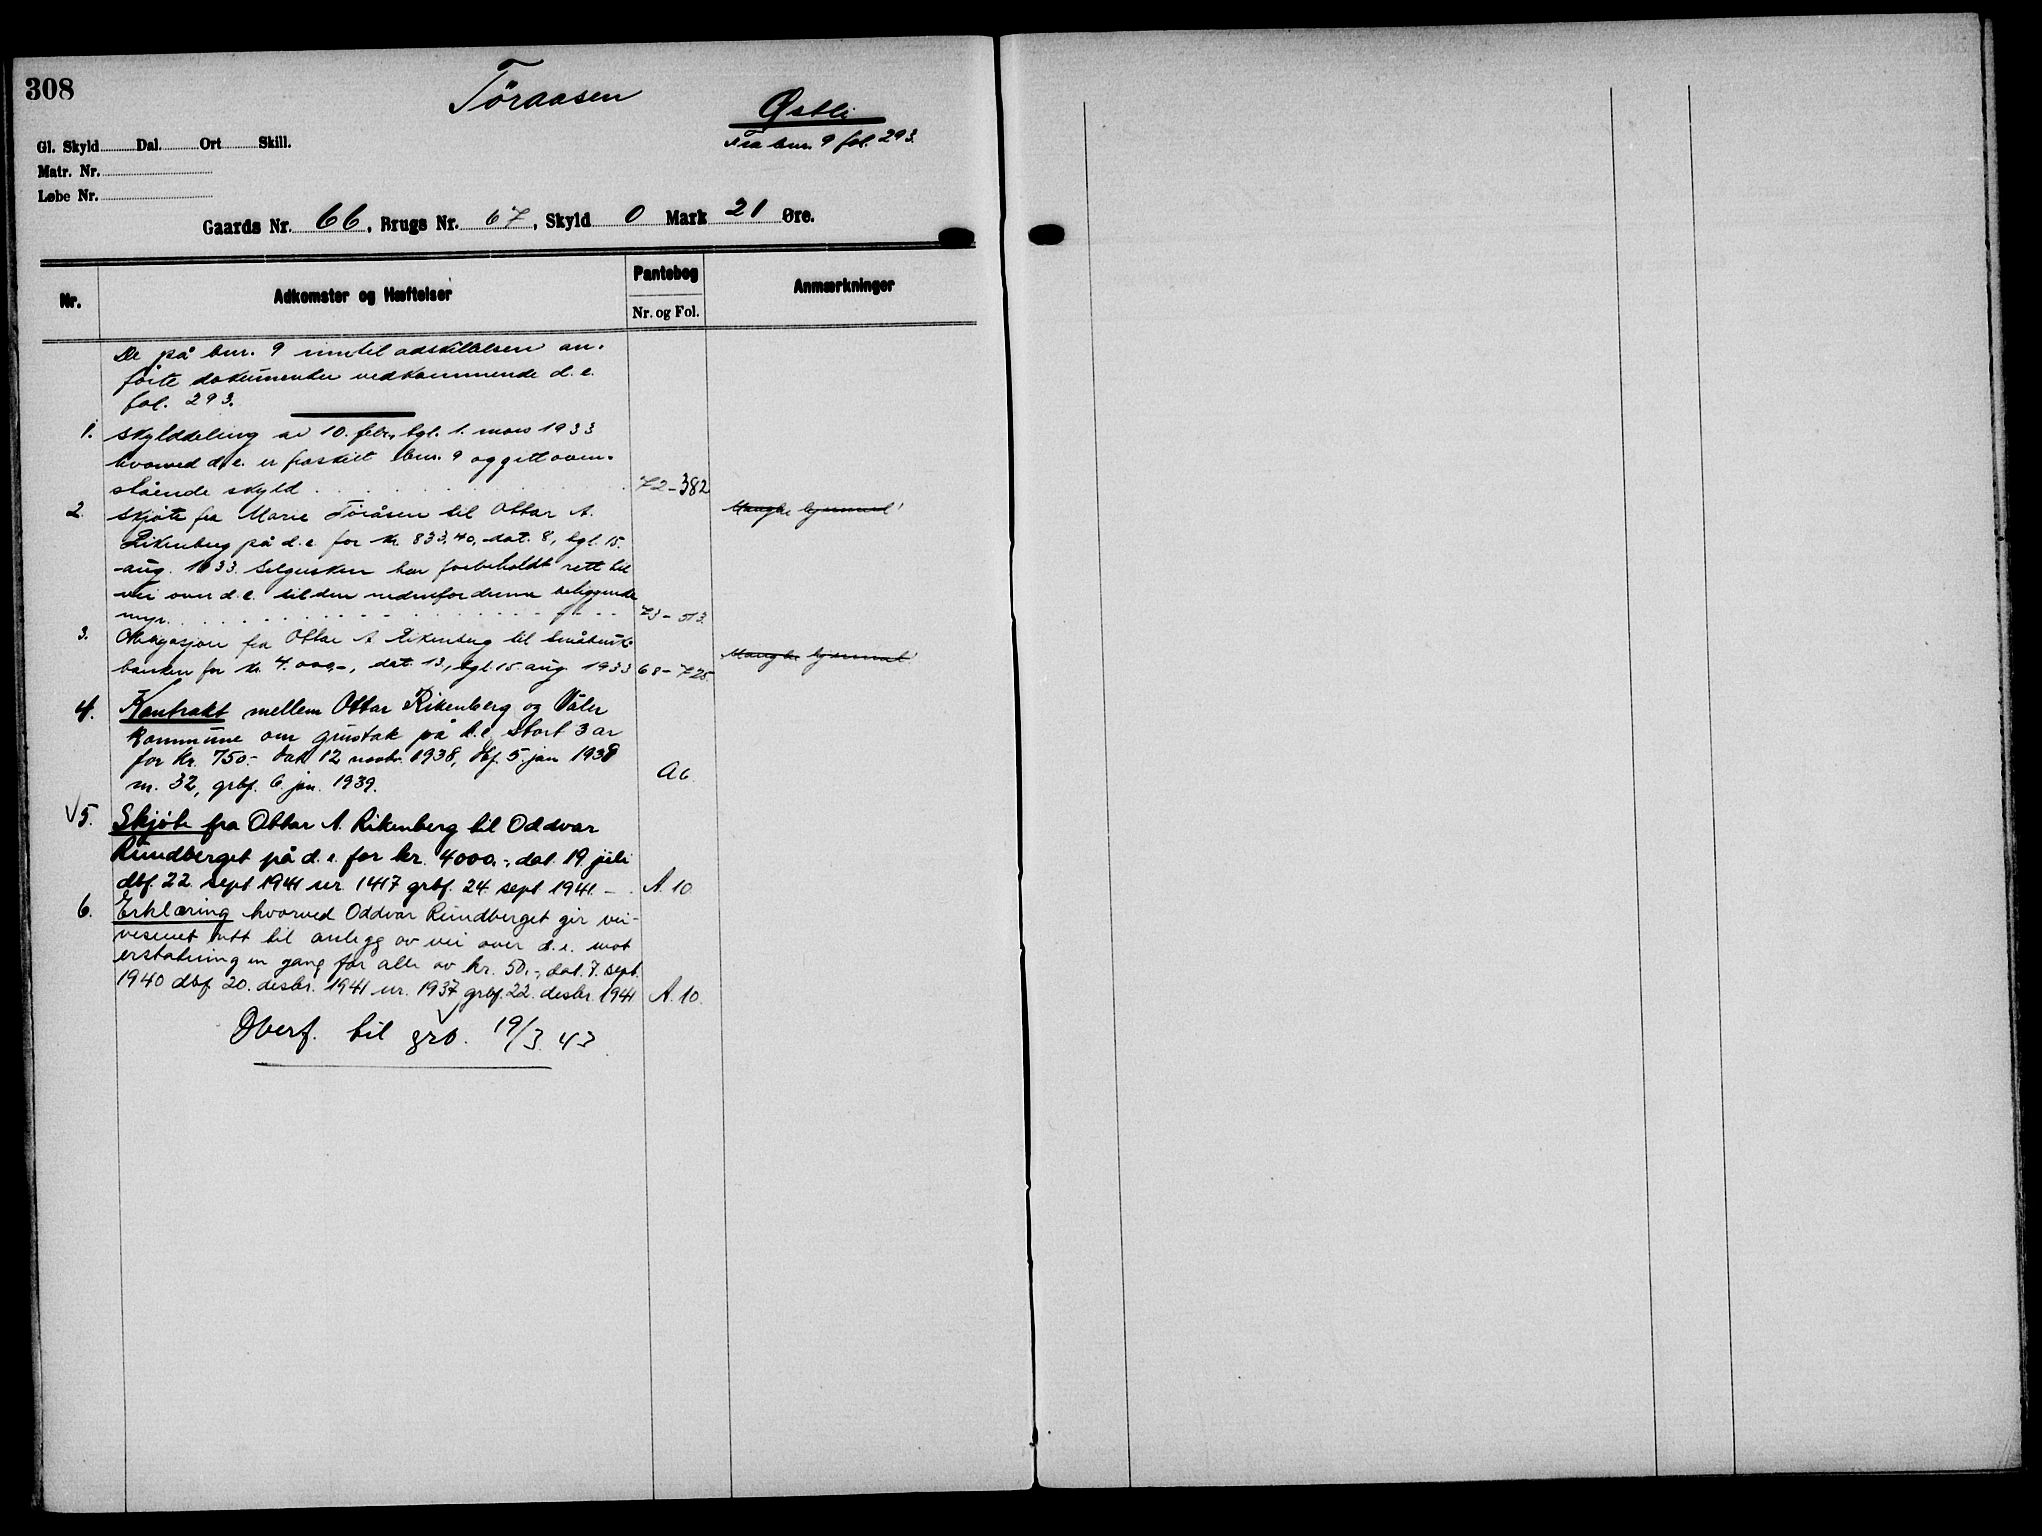 308
Töraasen
Østli
Fra bnr. 9 fol. 293.
Gl. Skyld Dal. Ort Skill.
Matr. Nr.
Løbe Nr.
Gaards Nr. 66, Brugs Nr. 67, Skyld 0 Mark 21 Øre.
Nr. Adkomster og Hæftelser Pantebog Nr. og Fol. Anmærkninger
De på bnr. 9 inntil adskillelsen an-
førte dokumenter vedkommende d. e.
fol. 293.
1. Skylddeling av 10. febr., tgl. 1. mars 1933
hvorved d. e. er fraskilt bnr. 9 og gitt oven-
stående skyld 72-382
2. Skjøte fra Marie Töråsen til Ottar A. Mangler hjemmel
Rikenberg på d. e. for kr. 833,40, dat. 8, tgl. 15.
aug. 1933. Selgersken har forbeholdt rett til
vei over d. e. til den nedenfor denne beliggende
myr. 73-513.
3. Obligasjon fra Ottar A Rikenberg til Småbruk-
banken for kr. 4.000,-, dat. 13, tgl. 15. aug. 1933 68-725. Mangler hjemmel
4. Kontrakt mellem Ottar Rikenberg og Våler
kommune om grustak på d. e, stort 3 ar
for kr. 750.- dat. 12 novbr. 1938, dbf. 5. jan 1939
nr. 32, grbf. 6. jan. 1939. A6.
√5. Skjöte fra Ottar A. Rikenberg til Oddvar
Rundberget på d. e. for kr. 4000.-, dat. 19. juli
dbf. 22. sept 1941 nr. 1417 grbf. 24. sept 1941. - A. 10
6. Erklæring hvorved Oddvar Rundberget gir vei-
vesenet rett til anlegg av vei over d. e. mot
erstatning en gang for alle av kr. 50.-, dat. 7. sept.
1940 dbf. 20. desbr. 1941 nr. 1937 grbf. 22. desbr. 1941 A. 10.
Overf. til grb. 19/3. 43